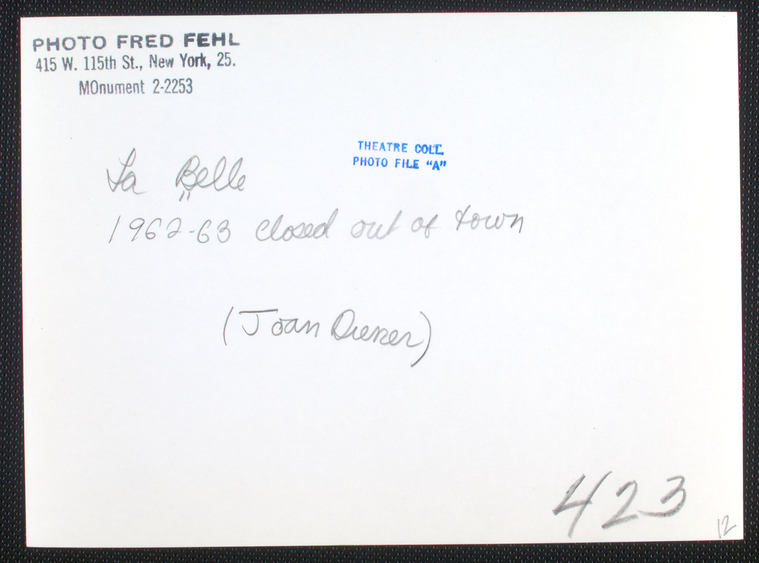 PHOTO FRED FEHL
415 W. 115th St., New York, 25.
MOnument 2-2253
THEATRE COLL.
PHOTO FILE "A"
La Belle
1962-63 closed out of town
(Joan Diener)
423
12